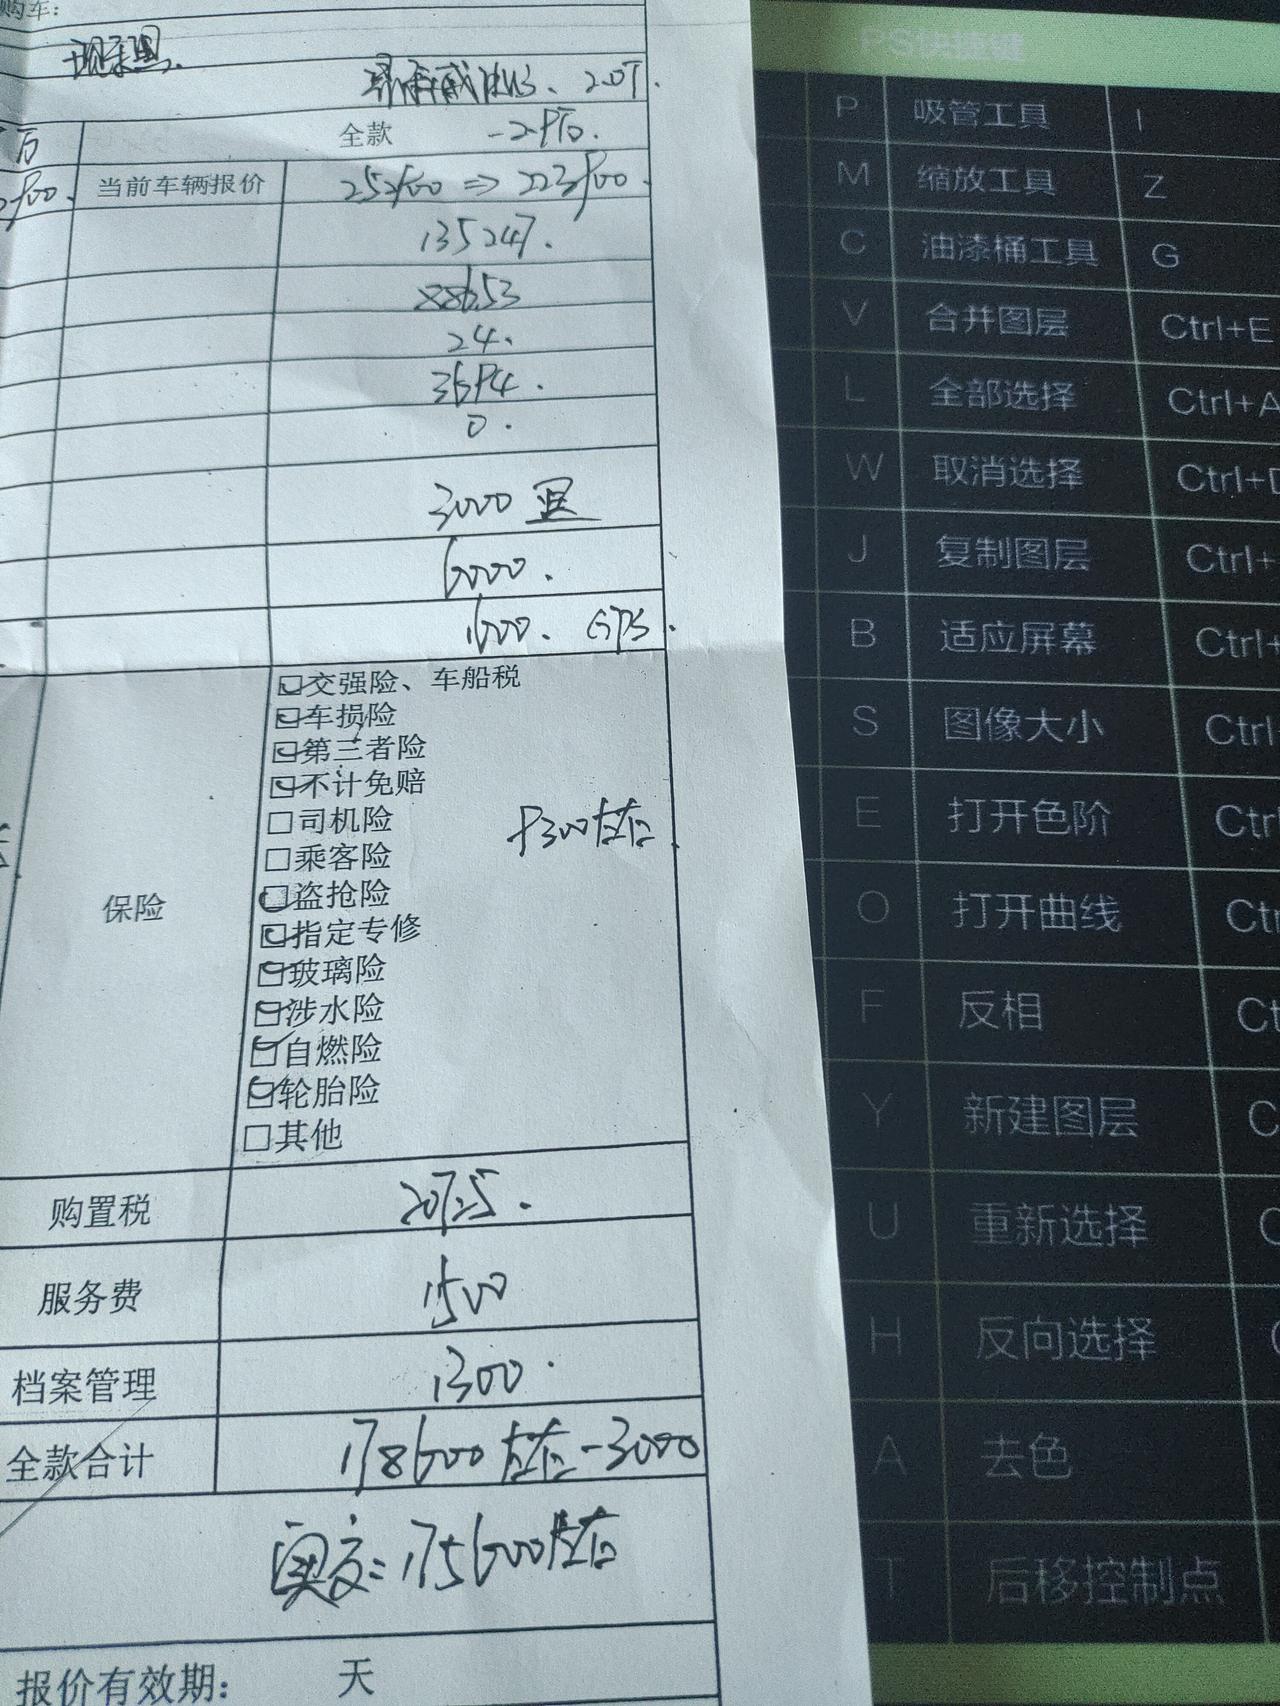 购车:
2.0T.
万
全款
当前车辆报价
135247.
88653
24.
3694.
0.
3000
6000.
1600. GPS.
保险
交强险、车船税
车损险
第三者险
不计免赔
司机险
乘客险
盗抢险
指定专修
玻璃险
涉水险
自燃险
轮胎险
其他
左右
购置税
服务费
1500
档案管理
1300.
全款合计
178600左右-3000
实交:175600左右
报价有效期: 天
PS快捷键
P 吸管工具 I
M 缩放工具 Z
C 油漆桶工具 G
V 合并图层 Ctrl+E
L 全部选择 Ctrl+A
W 取消选择 Ctrl+D
J 复制图层 Ctrl+
B 适应屏幕 Ctrl+
S 图像大小 Ctrl
E 打开色阶 Ctr
O 打开曲线 Ctr
F 反相 Ct
Y 新建图层 C
U 重新选择 C
H 反向选择
A 去色
T 后移控制点